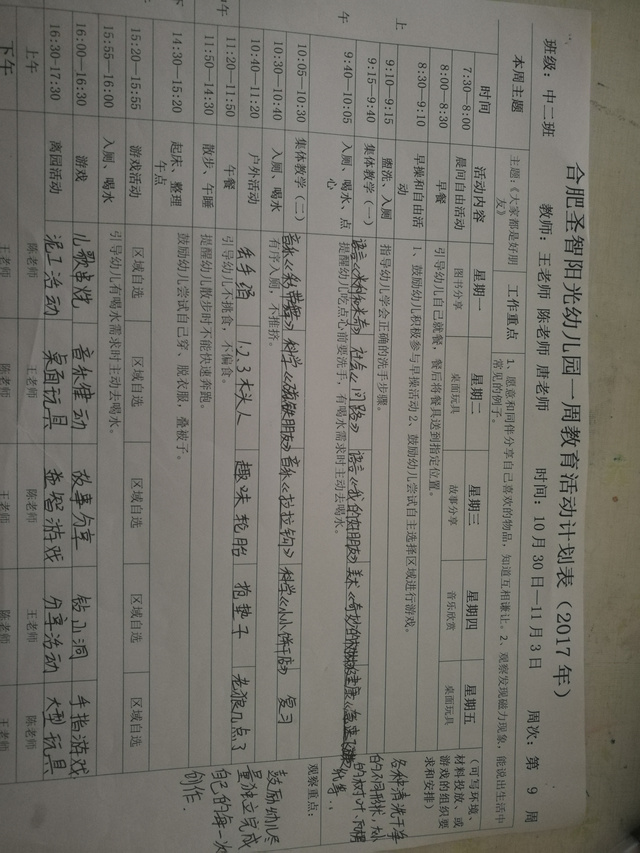 合肥圣智阳光幼儿园一周教育活动计划表（2017 年）
班级：中二班 教师：王老师 陈老师 唐老师 时间：10 月 30 日—11 月 3 日 周次：第 9 周
本周主题 主题：《大家都是好朋友》 工作重点 1、愿意和同伴分享自己喜欢的物品，知道互相谦让。2、观察发现磁力现象，能说出生活中常见的例子。
时间 活动内容 星期一 星期二 星期三 星期四 星期五 （可写环境、材料投放、或游戏的组织要求和安排）
上午
7:30—8:00 晨间自由活动 图书分享 桌面玩具 故事分享 音乐欣赏 桌面玩具
8:00—8:30 早餐 引导幼儿自己就餐，餐后将餐具送到指定位置。
8:30—9:10 早操和自由活动 1、鼓励幼儿积极参与早操活动 2、鼓励幼儿尝试自主选择区域进行游戏。
9:10—9:15 盥洗、入厕 指导幼儿学会正确的洗手步骤。
9:15—9:40 集体教学（一） 社会《问路》 语言《我的好朋友》
9:40—10:05 入厕、喝水、点心 提醒幼儿吃点心前要洗手，有喝水需求时主动去喝水。
10:05—10:30 集体教学（二） 科学 音乐《拉拉钩》 科学《小小饼干店》 复习
10:30—10:40 入厕、喝水 有序入厕，不推挤。
10:40—11:20 户外活动 丢手绢 1.2.3木头人 趣味轮胎 抱垫子 老狼几点了
观察重点：
鼓励幼儿尽量独立完成自己的每一次创作.
11:20—11:50 午餐 引导幼儿不挑食，不偏食。
11:50—14:30 散步、午睡 提醒幼儿散步时不能快速奔跑。
14:30—15:20 起床、整理 午点 鼓励幼儿尝试自己穿、脱衣服，叠被子。
15:20—15:55 游戏活动 区域自选 区域自选 区域自选 区域自选 区域自选
15:55—16:00 入厕、喝水 引导幼儿有喝水需求时主动去喝水。
16:00—16:30 游戏 儿歌串烧 音乐律动 故事分享 钻山洞 手指游戏
16:30-17:30 离园活动 泥工活动 桌面玩具 益智游戏 分享活动 大型玩具
上午 陈老师 王老师 陈老师 王老师 陈老师
下午 王老师 陈老师 王老师 陈老师 王老师